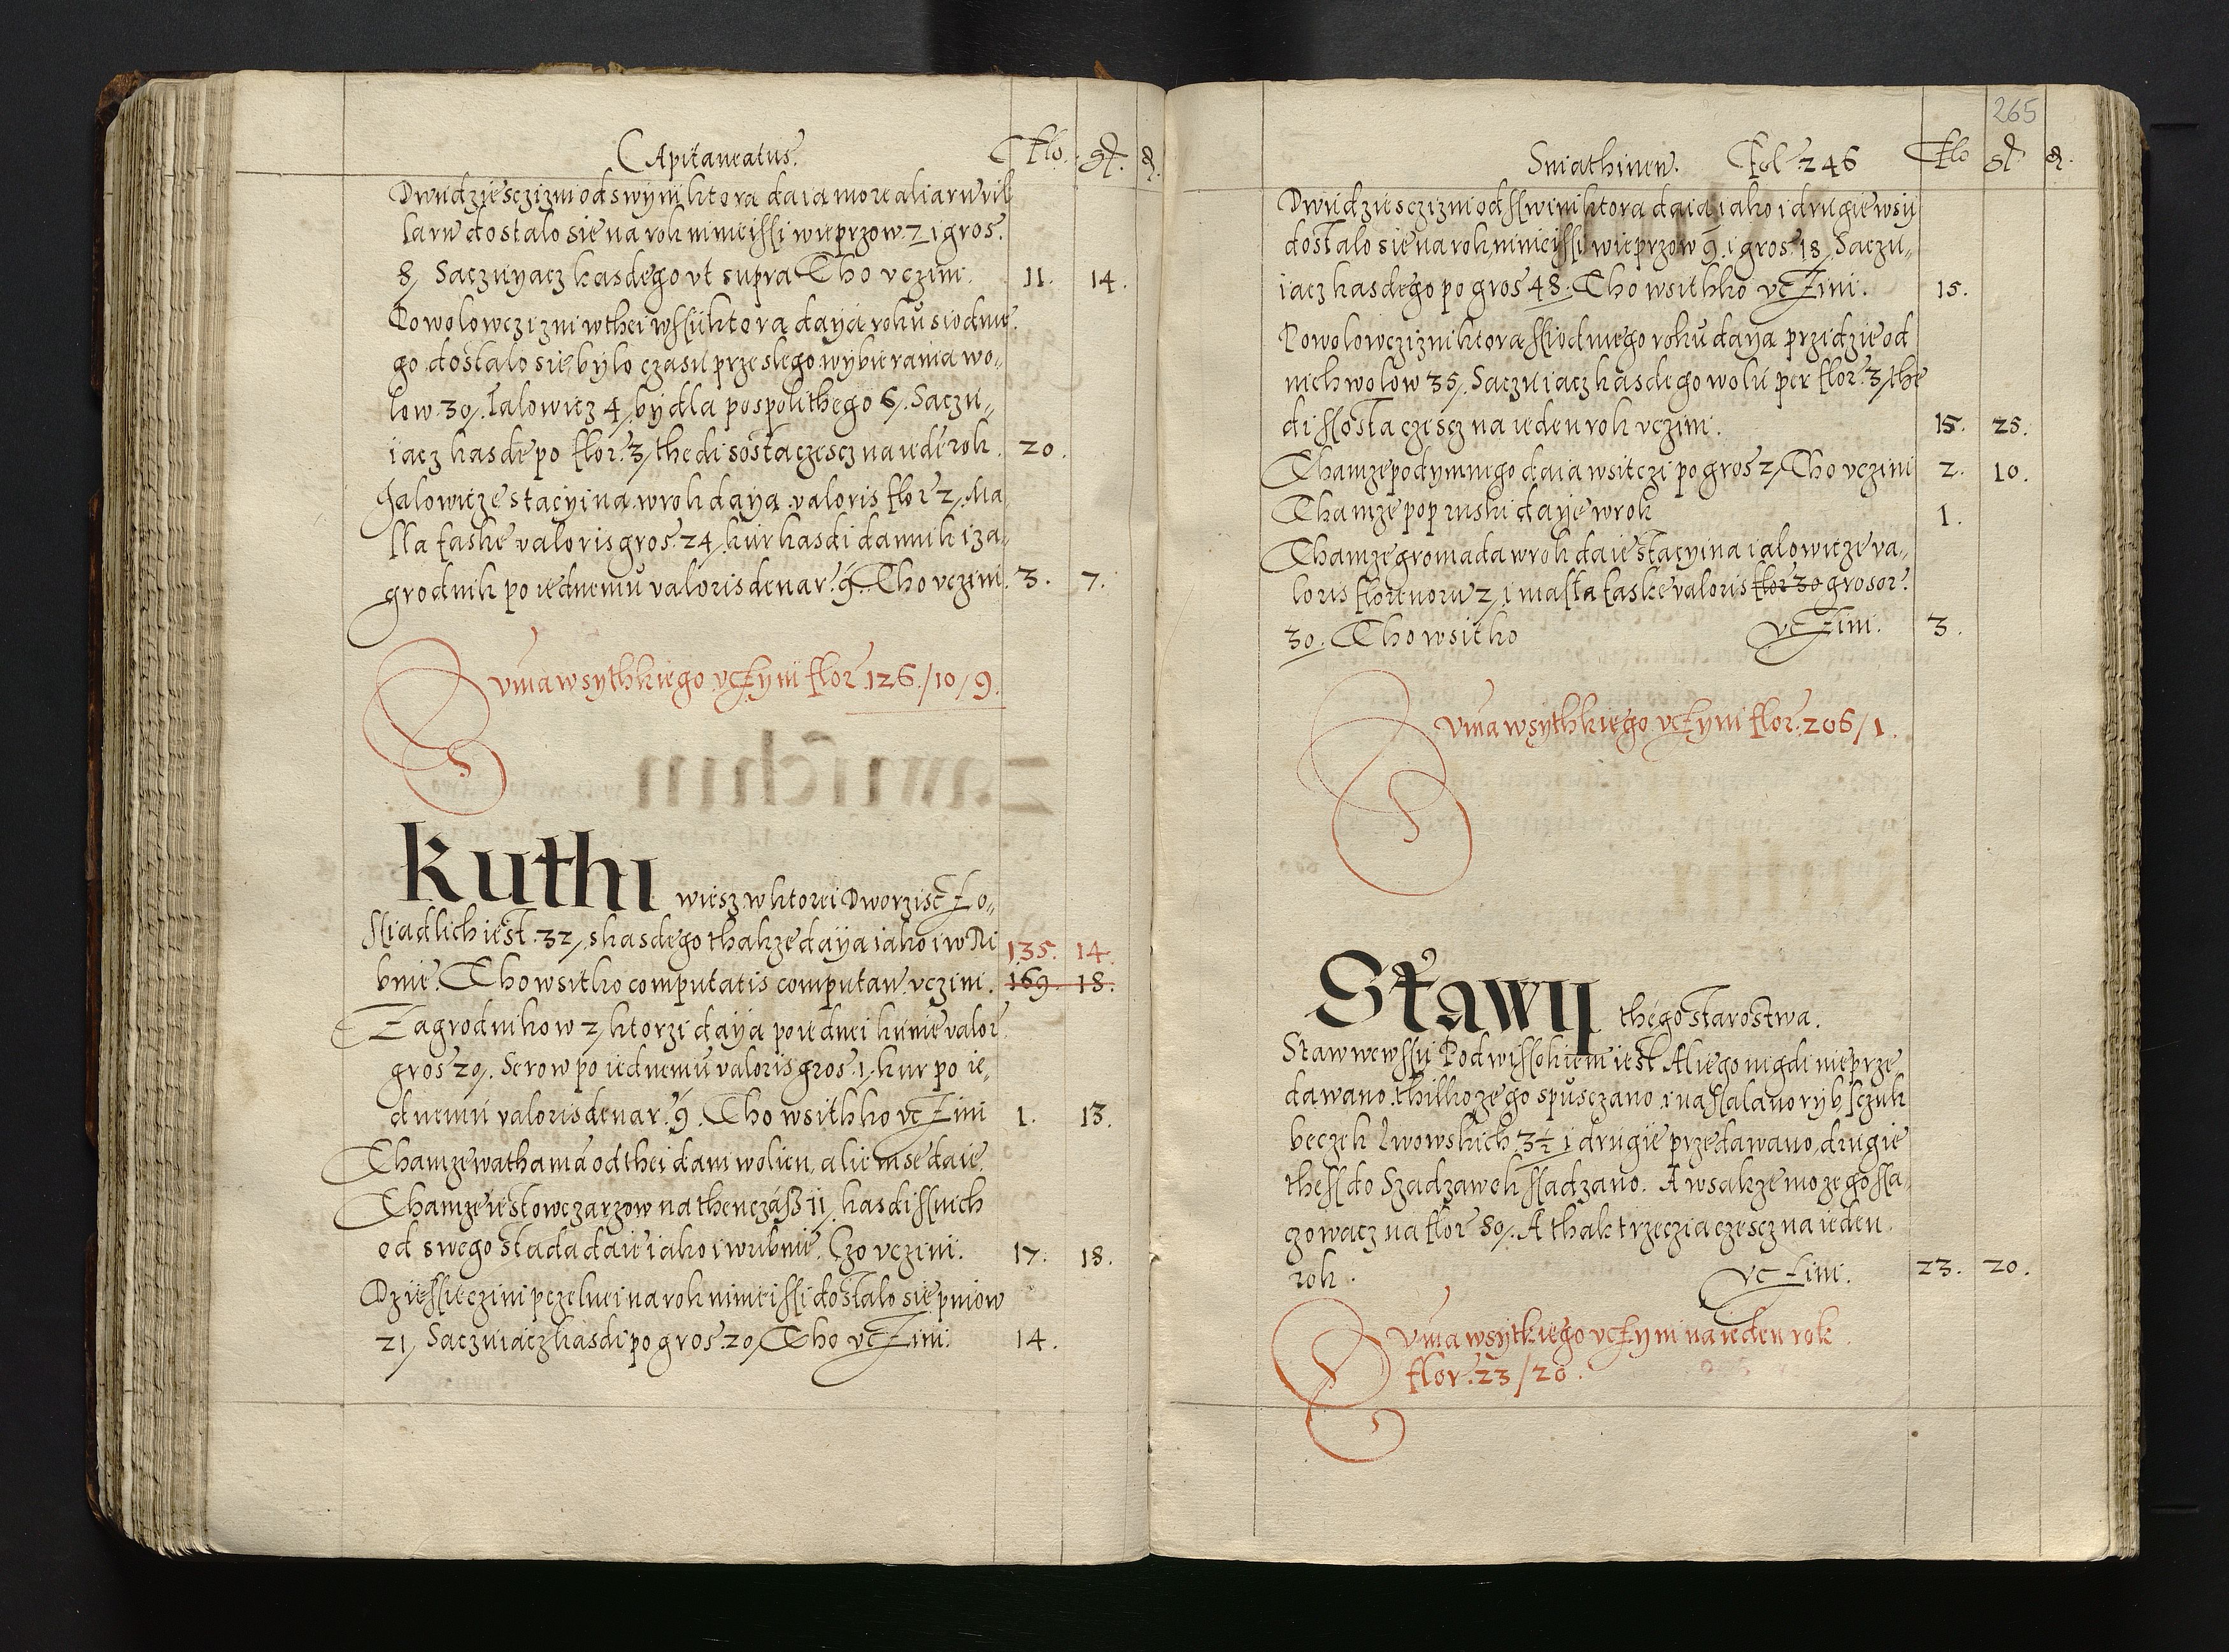 Capitaneatus. Flo. gr. d.
Dwudziesczizni od swyni ktora daia more aliaru vil
laru dostalo sie na rok ninieissi wieprzow 21 gros.
8/ Saczuyacz kasdego vt supra Tho vczini. 11. 14.
Powolowczizni w thei wssii ktora daya roku siodme
go dostalo sie bylo czasu przeslego wybierania wo„
low 30/. Ialowicz 4/ bydla pospolithego 6/. Saczu„
iacz kasde po flor. 3/ thedi sosta czescz na iede rok. 20.
Jalowicze stacyina w rok daya valoris flor 2/. Ma
sla faske valoris gros. 24/ kur kasdi dannik i za„
grodnik po iednemu valoris denar. 9. Tho vczini. 3. 7.
Suma wsythkiego vczyni flor. 126./10/9.
Kuthi wiesz w ktorei Dworziscz o„
ssiadlich iest. 32/ s kasdego thakze daya iako i w Ri 135. 14.
bnie. Tho wsitko computatis computan. vczini. 169. 18.
Zagrodnikow 2/ ktorzi daya po iednei kunie valor.
gros 20/. Serow po iednemu valoris gros. 1/ kur po ie„
dnemu valoris denar. 9. Tho wsithko vczini 1. 13.
Thamze wathama od thei dani wolien, alie mse daie.
Thamze iest owczarzow na then czáß 11/ kasdi ssnich
od swego stada daie iako i w ribnie. Czo vczini. 17. 18.
Dziessieczini pczelnei na rok ninieissi dostalo sie pniow
21/ Saczuiacz kasdi po gros. 20/ Tho vczini. 14.
265
Sniathinen. Fol. 246 Flo gr d.
Dwudziesczizni od sswini ktora daia iako i drugie wsii
dostalo sie na rok ninieissi wieprzow 9. i gros. 18/ Saczu„
iacz kasdego po gros 48. Tho wsithko vczini. 15.
Powolowczizni ktora ssiodmego roku daya przidzie od
nich wolow 35/. Saczuiacz kasdego wolu per flor. 3/ the
di ssosta czescz na ieden rok vczini. 15. 25.
Thamze podymnego daia wsitczi po gros 2/ Tho vczini 2. 10.
Thamze pop ruski daye w rok 1.
Thamze gromada w rok daie stacyina ialowicze va„
loris florenoru 2/ i masla faske valoris flor 30 grosor.
30. Tho wsitko vczini. 3.
Suma wsythkiego vczyni flor. 206/1.
Stawy thego starostwa.
Staw we wssii Podwissokiem iest Ali ego nigdi nie prze
dawano, thilko ze go spusczano i nassalano ryb sczuk
beczek Lwowskich. 3½ i drugie przedawano, drugie
thess do Szadzawek ssadzano. A wsakze moze go ssa„
czowacz na flor 80/. A thak trzeczia czescz na ieden
rok. vczini. 23. 20.
Suma wsytkiego vczyni na ieden rok
flor. 23/20.